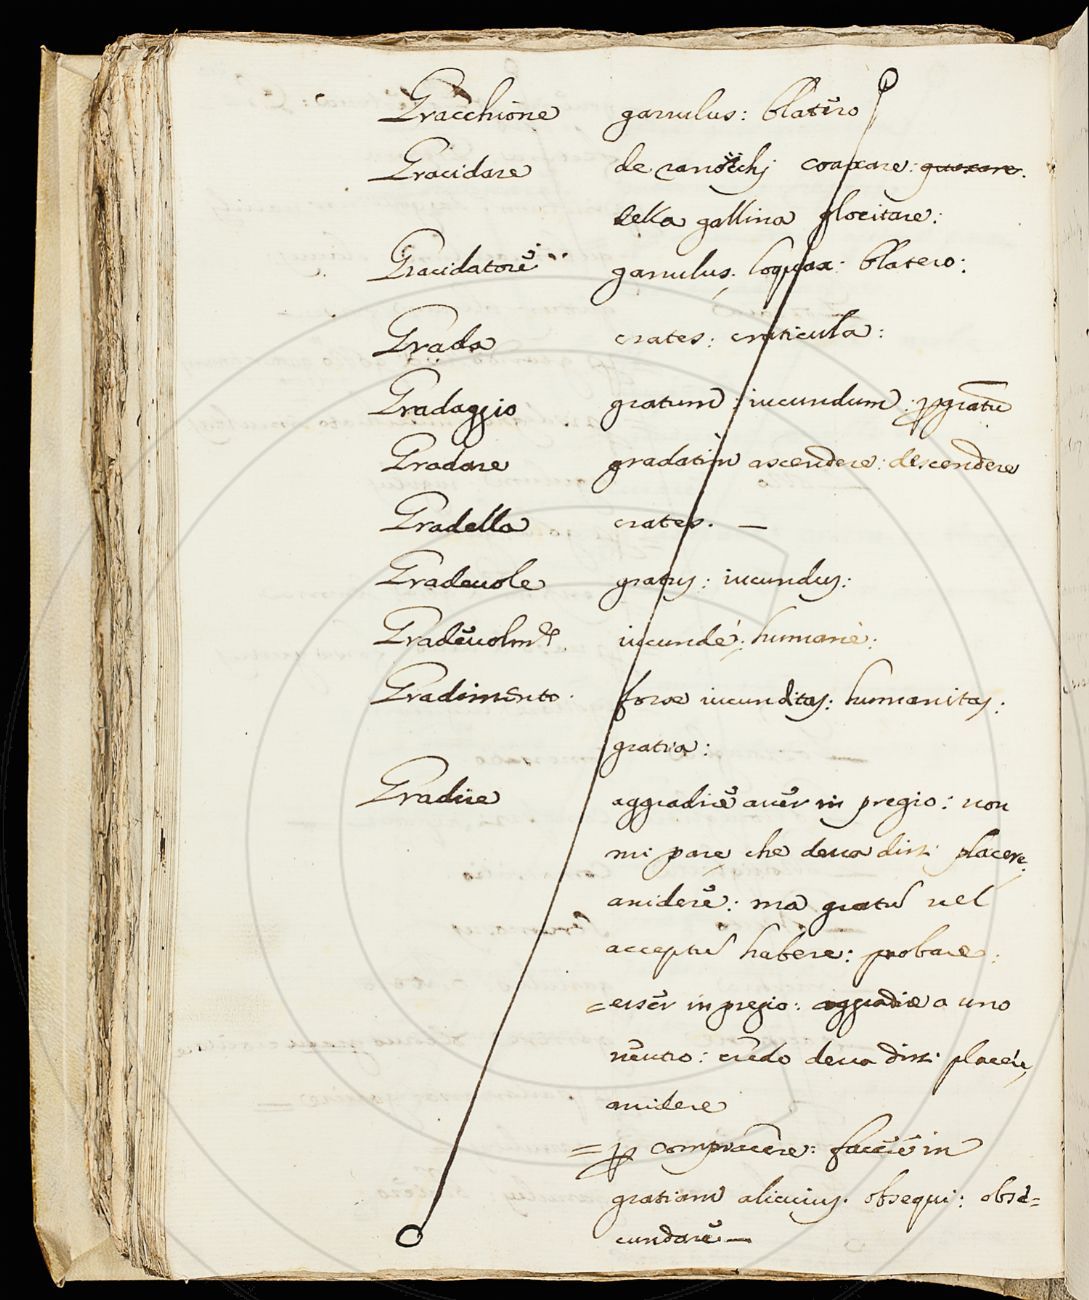 Gracchione garrulus: blatero
Gracidare de ranocchj coaxare: guaxare.
della gallina glocitare:
Gracidatore garrulus. loquax: blatero:
Grada crates: craticula:
Gradaggio gratum: iucundum:
Gradare gradatim ascendere: descendere
Gradella crates. —
Gradeuole gratus: iucundus:
Gradeuolmte. iucundè: humanè:
Gradimento. iucunditas: humanitas:
gratia:
Gradire aggradire auer in pregio: non
mi pare che deua dirsi placere,
arridere: ma gratū uel
acceptū habere: probare:
= esser in pregio: aggradire a uno
neutro: credo deua dirsi placere,
arridere
= p compiacere: facere in
gratiam alicuius. obsequi: obse=
cundare —